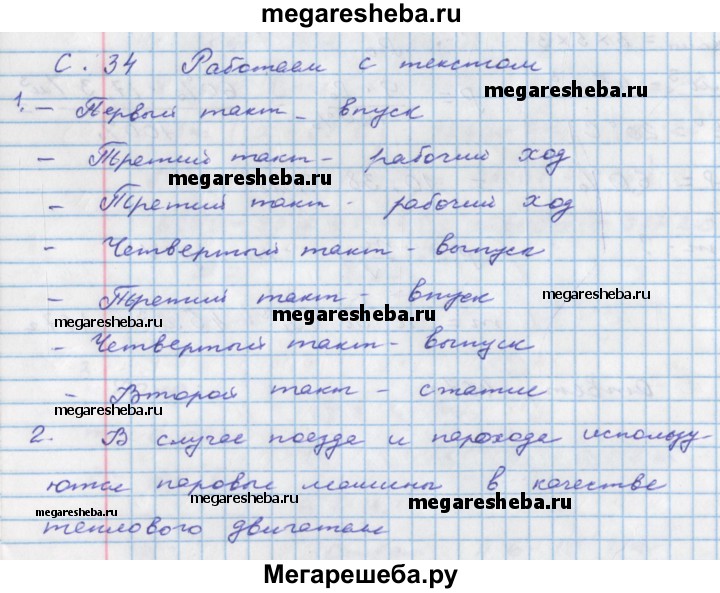 megaresheba.ru
С. 34 Работаем с текстом
megaresheba.ru
1. – Первый такт – впуск
– Третий такт – рабочий ход
megaresheba.ru
– Третий такт – рабочий ход
– Четвертый такт – выпуск
– Третий такт – впуск
megaresheba.ru
megaresheba.ru
megaresheba.ru
– Четвертый такт – выпуск
– Второй такт – сжатие
megaresheba.ru
2. В случае поезда и парохода использу-
ются паровые машины в качестве
megaresheba.ru
megaresheba.ru
megaresheba.ru
теплового двигателя
Мегарешеба.ру